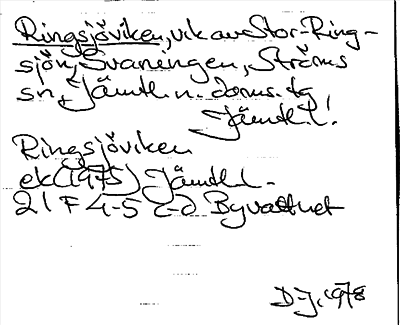 Ringsjöviken, vik av Stor-Ring-
sjön, Svaningen, Ströms
sn, Jämtl. n. doms. tg
Jämtl. l.
Ringsjöviken
ek (1975) Jämtl. l.
21 F 4-5 c-d Byvattnet
D-J, 1978